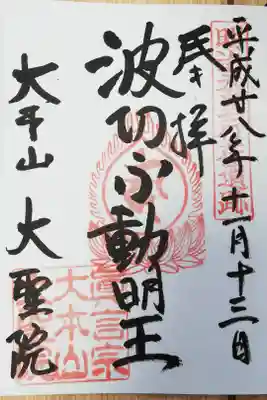 平成廿八年十一月十三日
奉拝
波切不動明王
大本山 大聖院
眞言宗
大本山